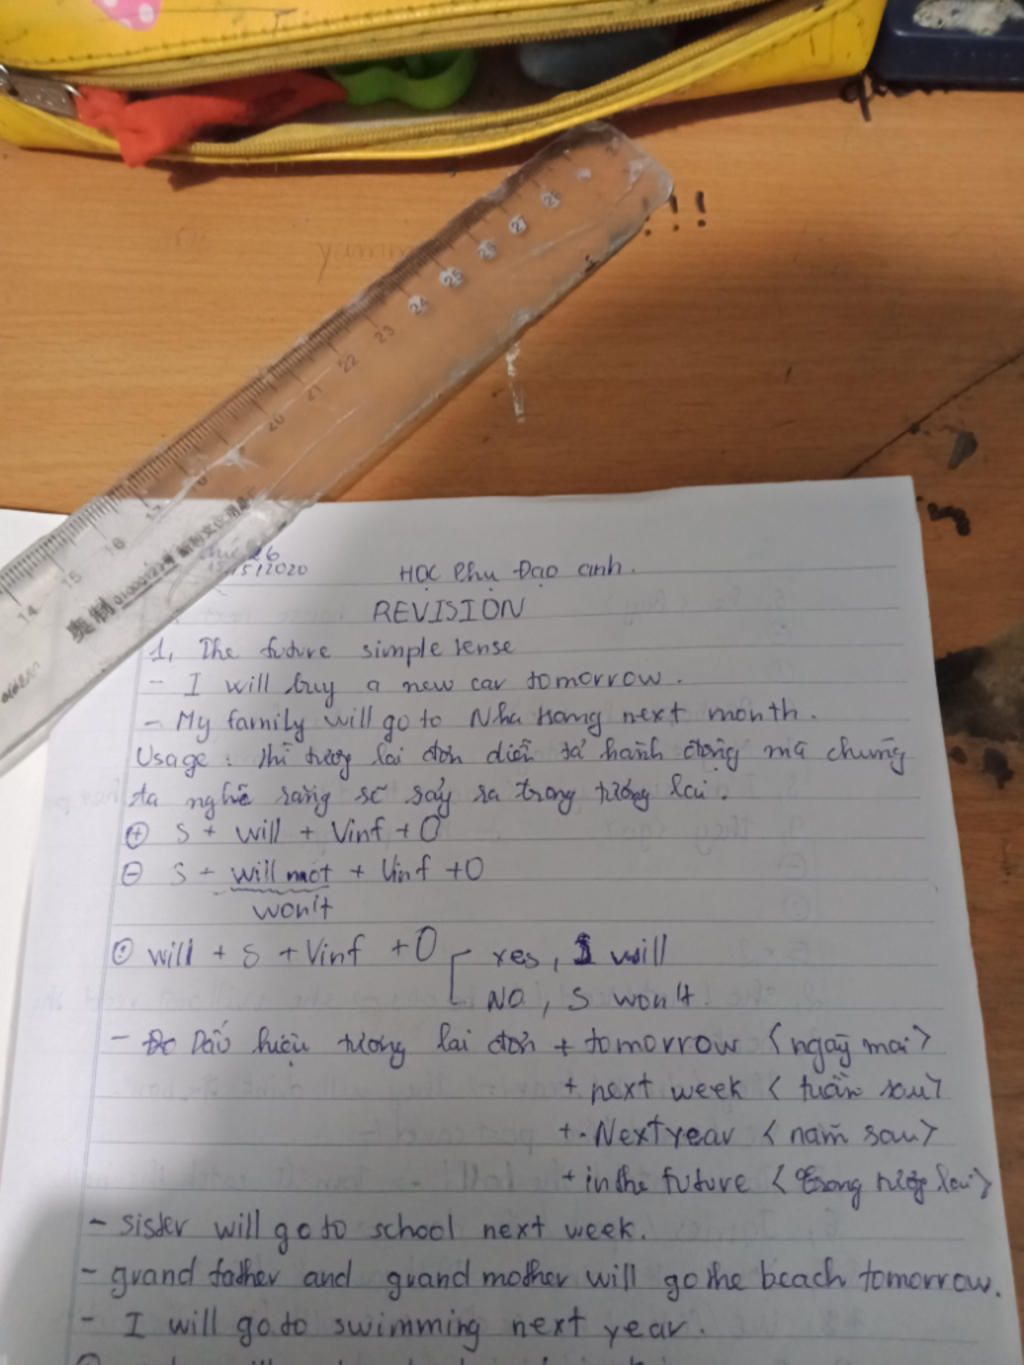 28
27
26
25
24
23
22
21
20
16
15
14
26
HỌC Phụ Đạo anh.
REVISION
1, The future simple tense
- I will buy a new car tomorrow.
- My family will go to Nha trang next month.
Usage: thì tương lai đơn diễn tả hành động mà chúng
ta nghĩ rằng sẽ sảy ra trong tương lai.
(+) S + will + Vinf + O
(-) S + will not + Vinf + O
won't
(?) will + S + Vinf + O yes, S will
NO, S won't
- Dấu hiệu tương lai đơn + tomorrow <ngày mai>
+ next week <tuần sau>
+ Next year <năm sau>
+ in the future <trong tương lai>
- sister will go to school next week.
- grand father and grand mother will go the beach tomorrow.
- I will go to swimming next year.